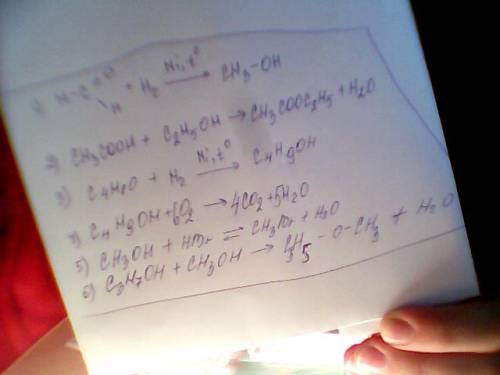 1) H-C=O H + H2 Ni, t° → CH3-OH
2) CH3COOH + C2H5OH → CH3COOC2H5 + H2O
3) C4H8O + H2 Ni, t° → C4H9OH
4) C4H9OH + 6O2 → 4CO2 + 5H2O
5) CH3OH + HBr ⇌ CH3Br + H2O
6) C3H7OH + CH3OH → C3H5-O-CH3 + H2O